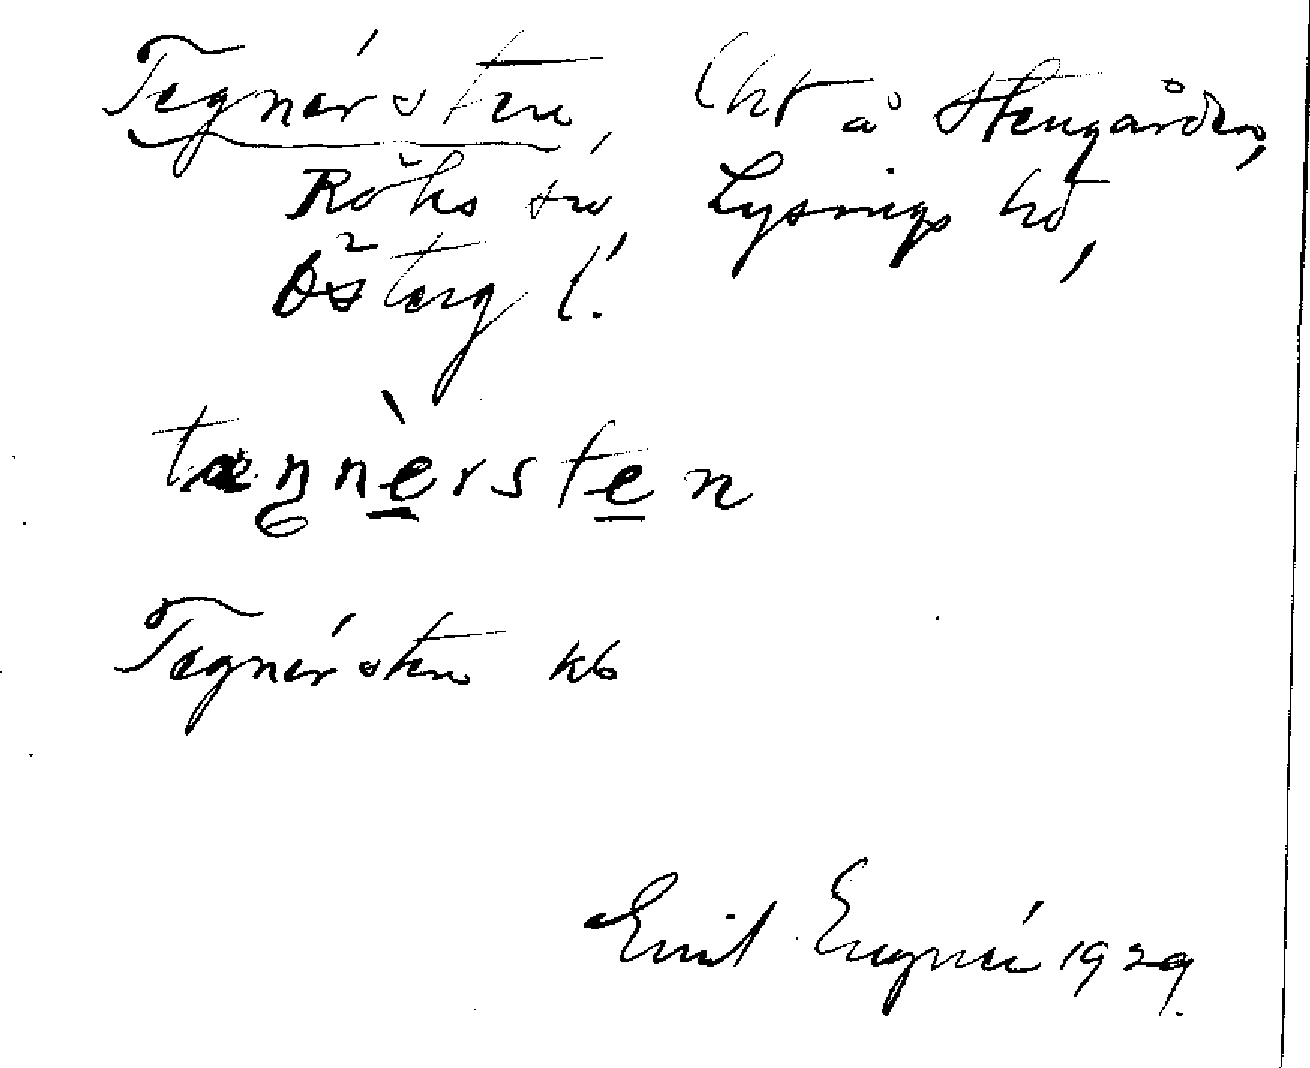 Tegnérsten, lht å Stengården,
Röks sn Lysings hd,
Österg l.
tæŋnèrsten
Tegnérsten kb
Emil Engnér 1929.